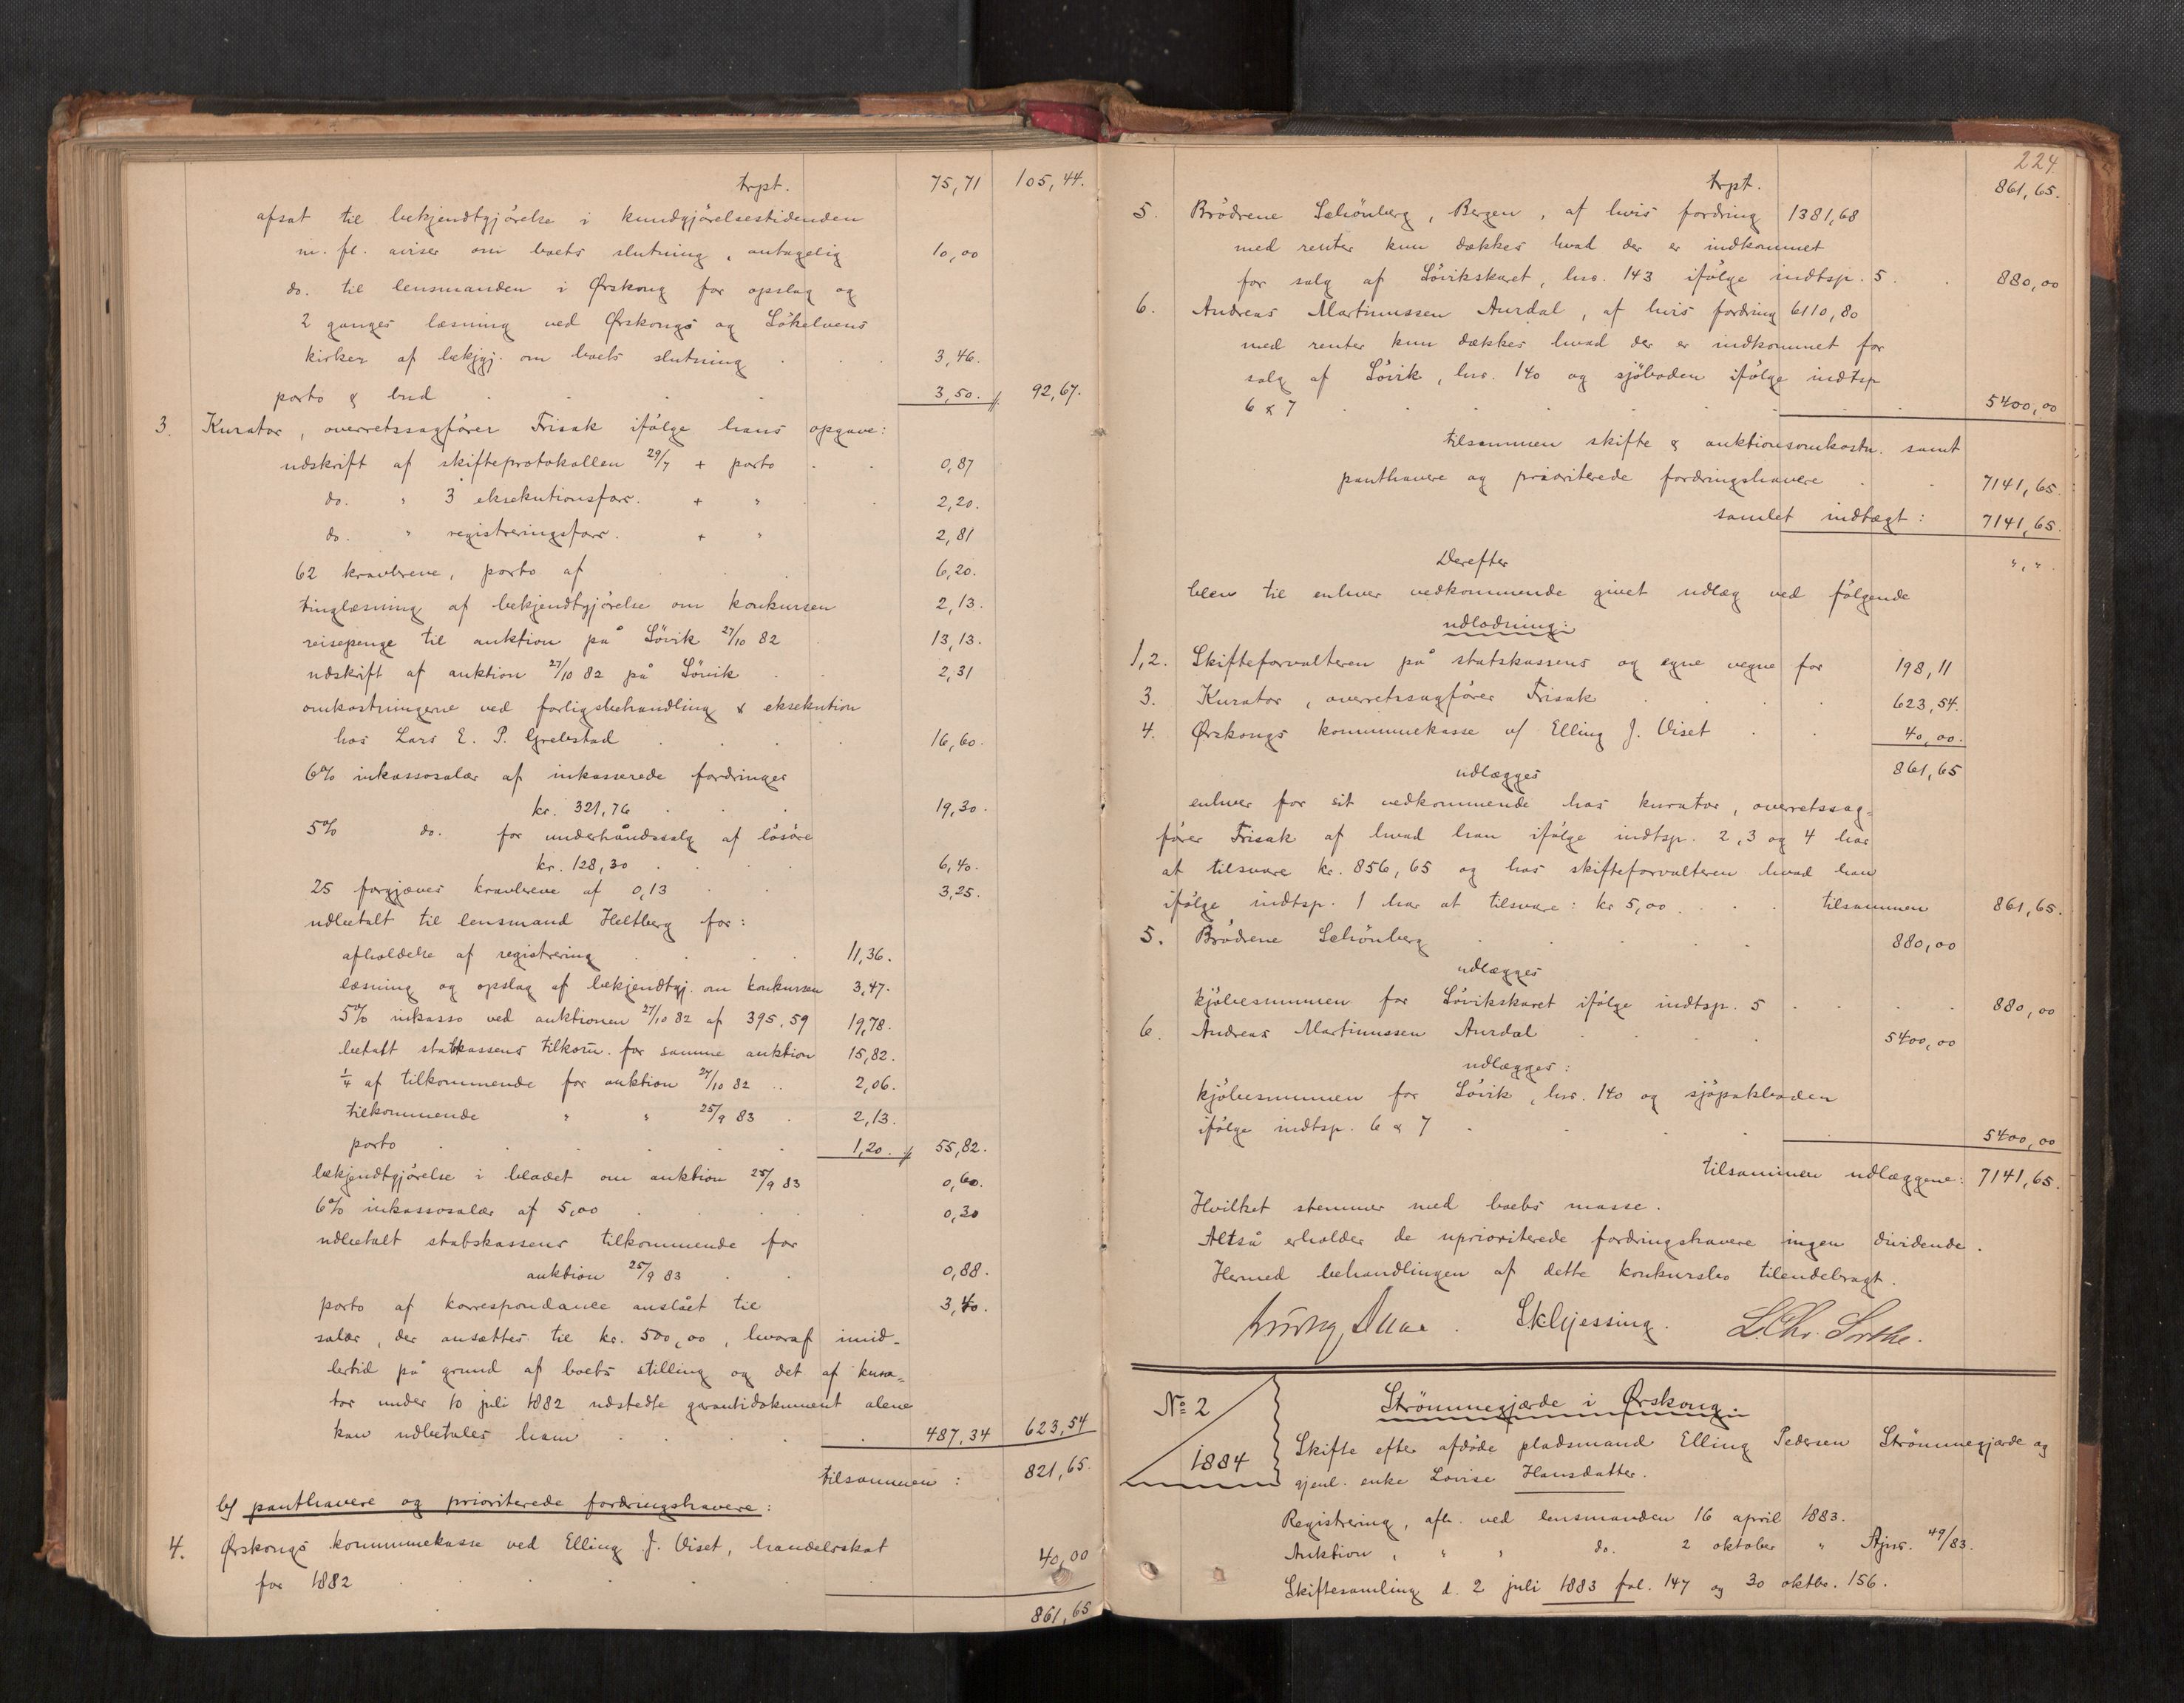 trpt. 75,71 105,44.
afsat til bekjendtgjörelse i kundgjörelsestidenden
m. fl. aviser om boets slutning, antagelig 10,00
do. til lensmanden i Ørskoug for opslag og
2 ganges læsning ved Ørskougs og Sökelvens
kirker af bekjgj. om boets slutning 3,46.
porto & bud 3,50. // 92,67.
3. Kurator, overretssagfører Frisak ifölge hans opgave:
udskrift af skifteprotokollen 29/7 + porto 0,87
do. " 3 eksekutionsforr. + " 2,20.
do. " registreringsforr. + " 2,81
62 kravbreve, porto af 6,20.
tinglæsning af bekjendtgjörelse om konkursen 2,13.
reisepenge til auktion på Lövik 27/10 82 13,13.
udskrift af auktion 27/10 82 på Lövik 2,31
omkostningerne ved forligsbehandling & eksekution
hos Lars E. P. Grebstad 16,60.
6% inkassosalær af inkasserede fordringer
kr. 321,76 19,30.
5% do. for underhåndssalg af lösöre
kr. 128,30 6,40.
25 forgjæves kravbreve af 0,13 3,25.
udbetalt til lensmand Heltberg for:
afholdelse af registrering 11,36.
læsning og opslag af bekjendtgj. om konkursen 3,47.
5% inkasso ved auktionen 27/10 82 af 395,59 19,78.
betalt statskassens tilkom. for samme auktion 15,82.
1/4 af tilkommende for auktion 27/10 82 2,06.
tilkommende " " 25/9 83 2,13.
porto 1,20. // 55,82.
bekjendtgjörelse i bladet om auktion 25/9 83 0,60.
6% inkassosalær af 5,00 0,30
udbetalt statskassens tilkommende for
auktion 25/9 83 0,88.
porto af korrespondance anslået til 3,40.
salær, der ansættes til kr. 500,00, hvoraf imid-
lertid på grund af boets stilling og det af kura-
tor under 10 juli 1882 udstedte garantidokument alene
kan udbetales ham 487,34 623,54
tilsammen: 821,65.
b/ panthavere og prioriterede fordringshavere:
4. Ørskougs kommunekasse ved Elling J. Viset, handelsskat 40,00
for 1882
861,65
224
trpt. 861,65.
5. Brödrene Schönberg, Bergen, af hvis fordring 1381,68
med renter kun dækkes hvad der er indkommet
for salg af Lövikskaret, lnr. 143 ifölge indtsp. 5 880,00
6. Andreas Martinussen Aurdal, af hvis fordring 6110,80
med renter kun dækkes hvad der er indkommet for
salg af Lövik, lnr. 140 og sjöboden ifölge indtsp
6 & 7 5400,00
tilsammen skifte & auktionsomkostn. samt
panthavere og prioriterede fordringshavere 7141,65.
samlet indtægt: 7141,65.
Derefter ","
blev til enhver vedkommende givet udlæg ved fölgende
udlodning:
1,2. Skifteforvalteren på statskassens og egne vegne for 198,11
3. Kurator, overretssagförer Frisak 623,54.
4. Ørskougs kommunekasse v/ Elling J. Viset 40,00.
udlægges 861,65
enhver for sit vedkommende hos kurator, overretssag-
förer Frisak af hvad han ifölge indtsp. 2, 3 og 4 har
at tilsvare kr. 856,65 og hos skifteforvalteren hvad han
ifölge indtsp. 1 har at tilsvare: kr 5,00 tilsammen 861,65.
5. Brödrene Schönberg 880,00
udlægges
kjöbesummen for Lövikskaret ifölge indtsp. 5 880,00
6. Andreas Martinussen Aurdal 5400,00
udlægges:
kjöbesummen for Lövik, lnr. 140 og sjöpakboden
ifölge indtsp. 6 & 7 5400,00
tilsammen udlæggene: 7141,65.
Hvilket stemmer med boets masse.
Altså erholder de uprioriterede fordringshavere ingen dividende.
Hermed behandlingen af dette konkursbo tilendebragt.
Skljessing. L. Chr.
No 2 Strömmegjærde i Ørskoug.
1884 Skifte efter afdöde pladsmand Elling Pedersen Strömmegjærde og
gjenl. enke Lovise Hansdatter.
Registrering, afh. ved lensmanden 16 april 1883.
Auktion, " " do. 2 oktober " Ajnr. 49/83.
Skiftesamling d. 2 juli 1883 fol. 147 og 30 oktbr. 156.